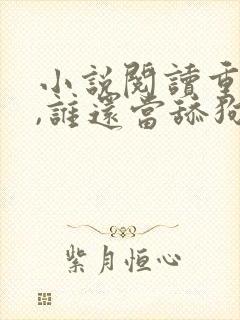 小說閱讀重
,誰還當舔狗
紫月恒心